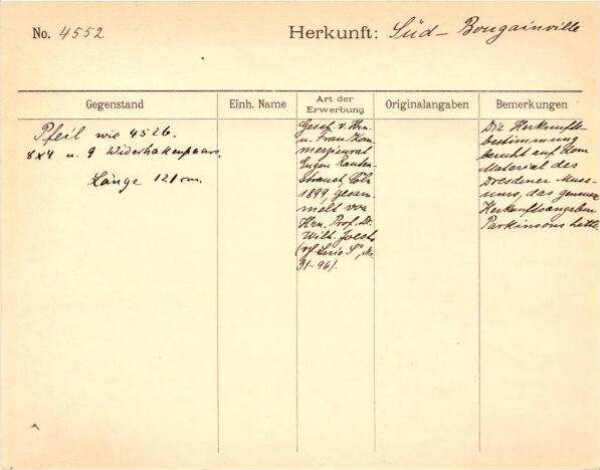 No. 4552
Herkunft: Süd-Bougainville
Gegenstand
Einh. Name
Art der
Erwerbung
Originalangaben
Bemerkungen
Pfeil wie 4526.
8x4 u. 9 Widerhakenpaare.
Länge 121 cm.
Gesch. v. Hrn.
u. Frau Kom-
merzienrat
Eugen Rauten-
strauch Cöln
1899 gesam-
melt von
Hrn. Prof. Dr.
Wilh. Joest
31-96).
Die Herkunfts-
bestimmung
beruht auf dem
Material des
Dresdener Muse-
ums, das genaue
Herkunftsangaben
Parkinsons hatte.